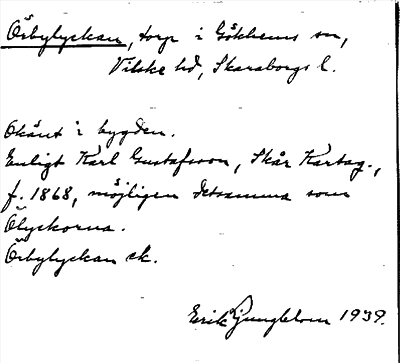 Örbylyckan, torp i Gökhems sn,
Vilske hd, Skaraborgs l.
Okänt i bygden.
Enligt Karl Gustafsson, Skår Kartag.,
f. 1868, möjligen detsamma som
Ölyckorna.
Örbylyckan ek.
Erik Ljungblom 1939.